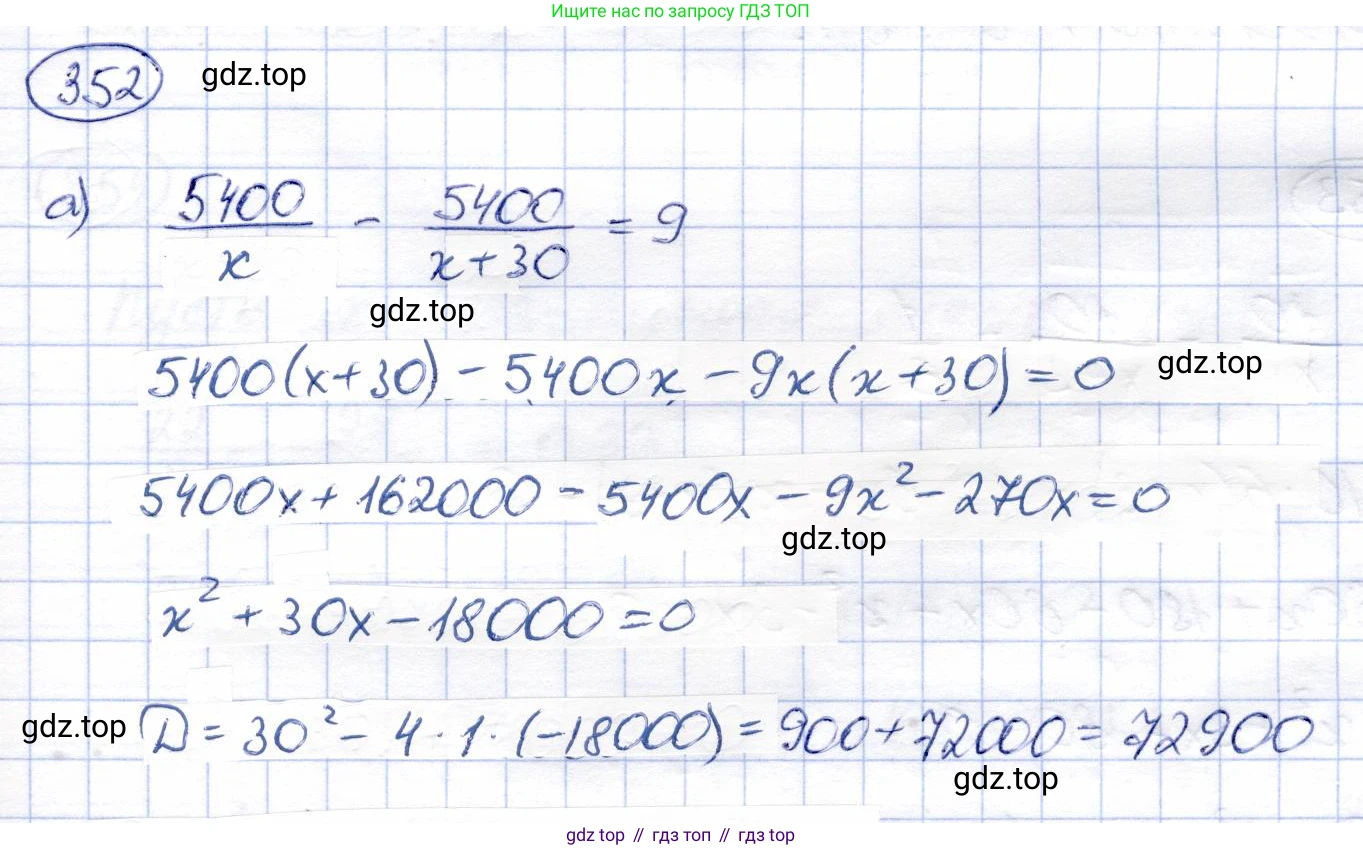 Ищите нас по запросу ГДЗ ТОП
352 gdz.top
а) 5400/x - 5400/(x+30) = 9
gdz.top
5400(x+30) - 5400x - 9x(x+30) = 0 gdz.top
5400x + 162000 - 5400x - 9x² - 270x = 0
gdz.top
x² + 30x - 18000 = 0
gdz.top D = 30² - 4 · 1 · (-18000) = 900 + 72000 = 72900
gdz.top
gdz top // гдз топ // gdz top